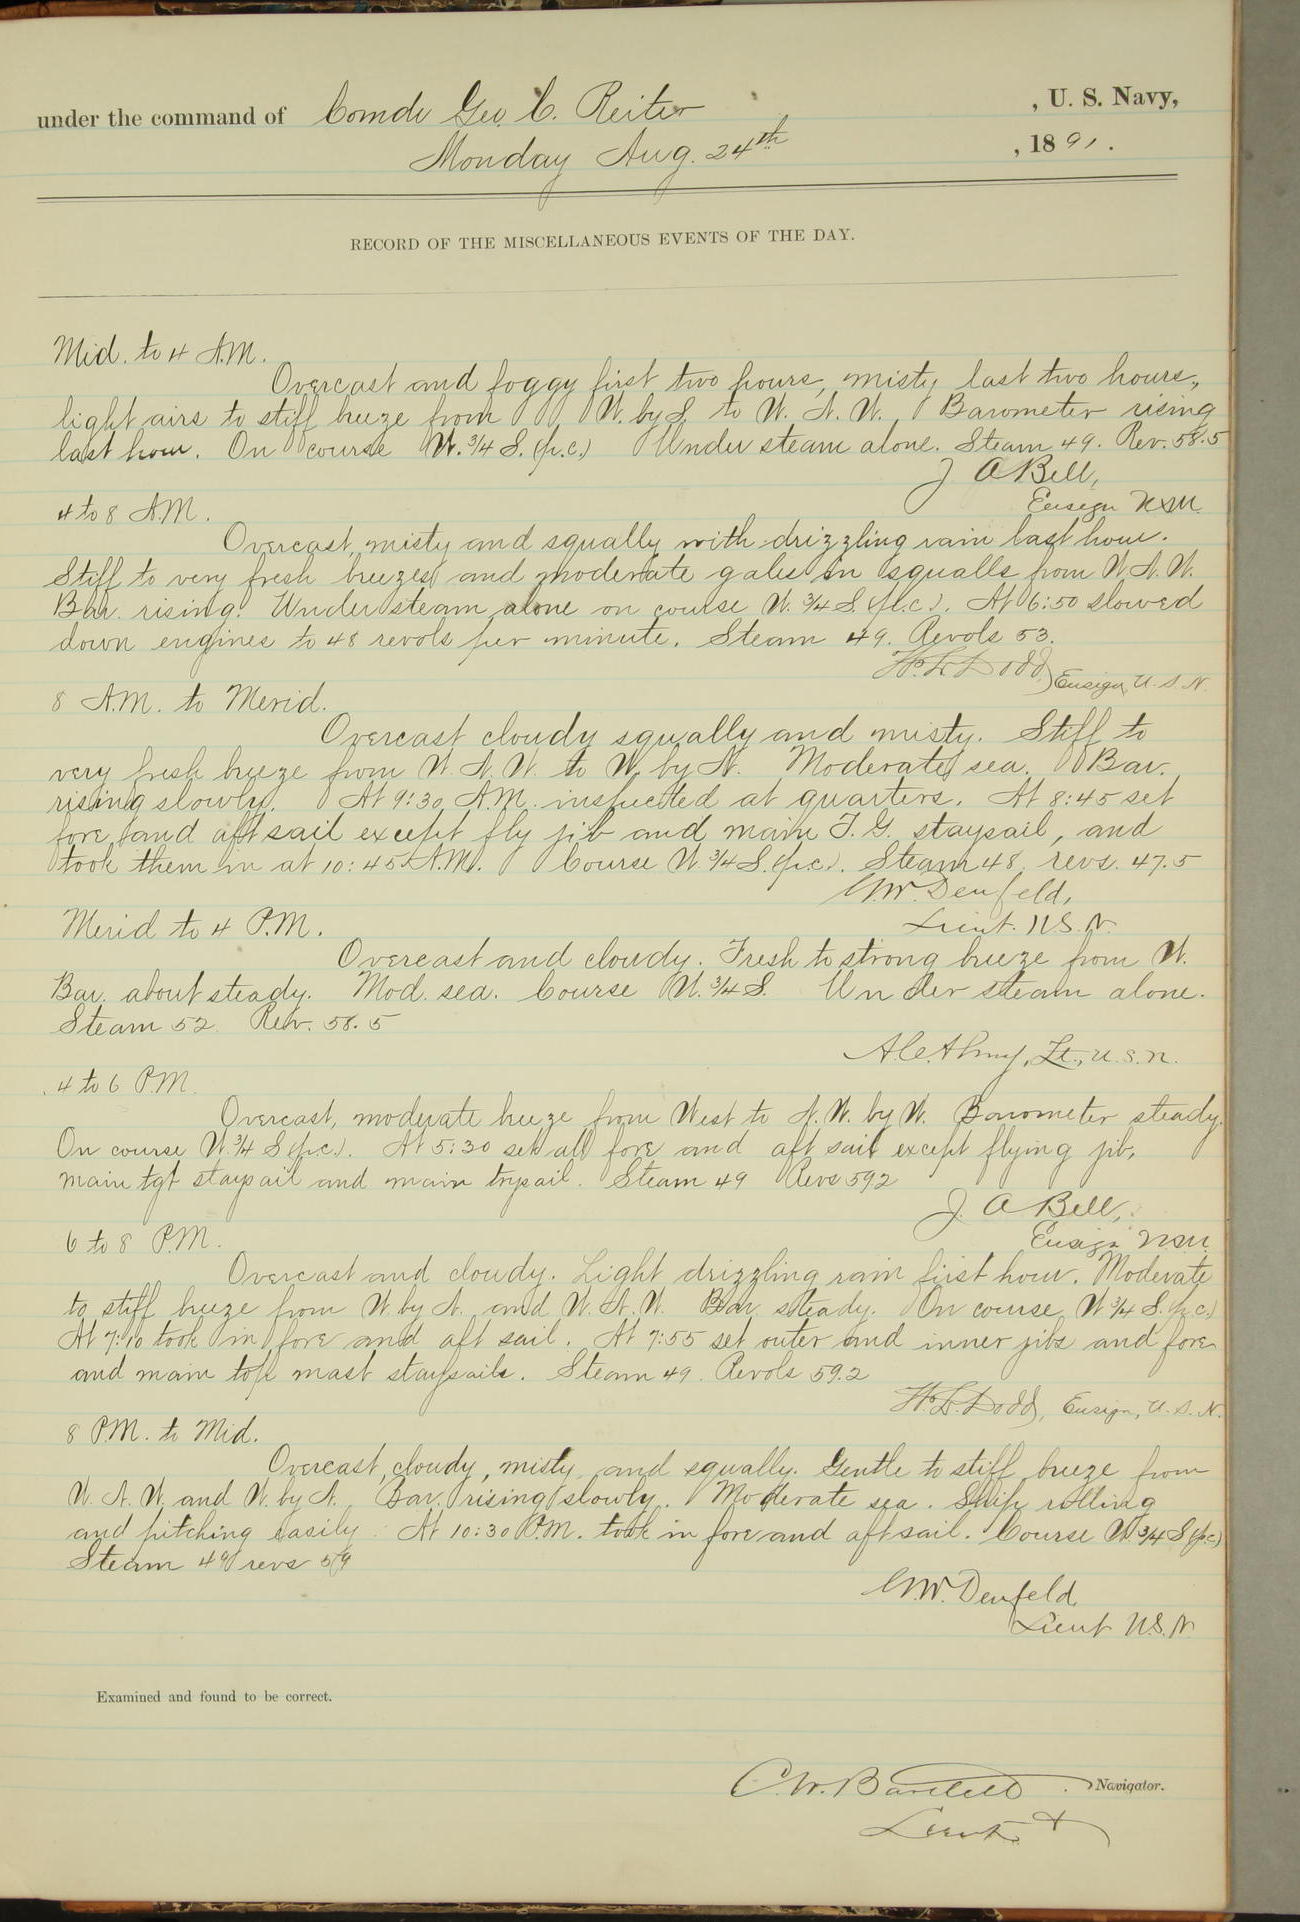 under the command of Comdr Geo. C. Reiter , U. S. Navy,
Monday Aug. 24th , 1891.
RECORD OF THE MISCELLANEOUS EVENTS OF THE DAY.
Mid. to 4 A.M.
Overcast and foggy first two hours, misty last two hours,
light airs to stiff breeze from W. by S. to W. N. W. Barometer rising
last hour. On course W. 3/4 S. (p.c.) Under steam alone. Steam 49. Rev. 58.5
J A Bell,
Ensign USN.
4 to 8 A.M.
Overcast, misty and squally with drizzling rain last hour.
Stiff to very fresh breezes and moderate gales in squalls from W. N. W.
Bar. rising. Under steam alone on course W. 3/4 S. (p.c.). At 6:50 slowed
down engines to 48 revols per minute. Steam 49. Revols 53.
Ensign, U.S.N.
8 A.M. to Merid.
Overcast cloudy squally and misty. Stiff to
very fresh breeze from W. N. W. to W. by N. Moderate sea. Bar.
rising slowly. At 9:30 A.M. inspected at quarters. At 8:45 set
fore and aft sail except fly jib and main T. G. staysail, and
took them in at 10:45 A.M. Course W 3/4 S. (p.c.). Steam 48, revs. 47.5
Denfeld,
Lieut. U.S.N.
Merid to 4 P.M.
Overcast and cloudy. Fresh to strong breeze from W.
Bar. about steady. Mod. sea. Course W. 3/4 S. Under steam alone.
Steam 52 Rev. 58.5
Lt., U.S.N.
4 to 6 P.M.
Overcast, moderate breeze from West to N. W. by W. Barometer steady.
On course W. 3/4 S (p.c.). At 5:30 set all fore and aft sail except flying jib,
main tgt staysail and main trysail. Steam 49 Revs 59.2
J. A Bell,
Ensign USN.
6 to 8 P.M.
Overcast and cloudy. Light drizzling rain first hour. Moderate
to stiff breeze from W. by N. and W. N. W. Bar. steady. On course W 3/4 S. (p.c.)
At 7:10 took in fore and aft sail. At 7:55 set outer and inner jibs and fore
and main top mast staysails. Steam 49. Revols 59.2
H. L. Dodd, Ensign, U.S.N.
8 P.M. to Mid.
Overcast, cloudy, misty and squally. Gentle to stiff breeze from
W. N. W. and W. by N. Bar. rising slowly. Moderate sea. Ship rolling
and pitching easily. At 10:30 P.M. took in fore and aft sail. Course W. 3/4 S (p.c.)
Steam 49 revs 59
Denfeld
Lieut U.S.N.
Examined and found to be correct.
C. W. Bartlett Navigator.
Lieut